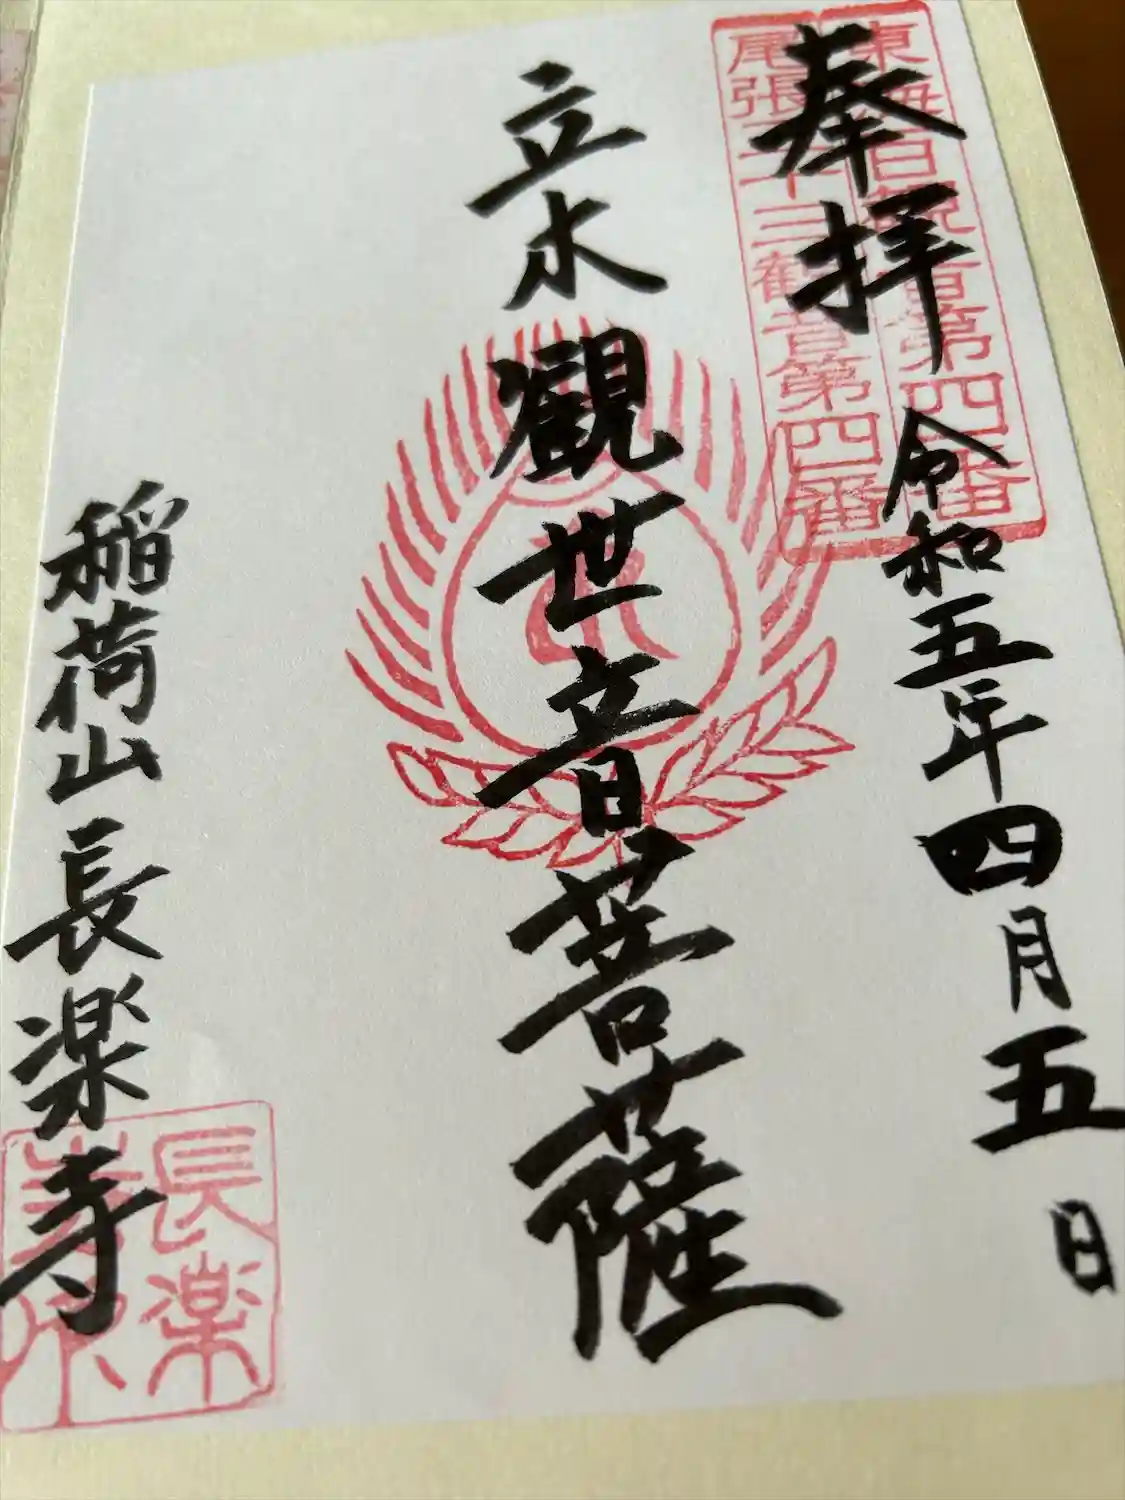 奉拝
令和五年四月五日
東海白寿観音第四番
尾張三十三観音第四番
立水観世音菩薩
稲荷山長楽寺
長楽